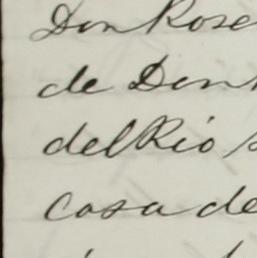 Don Rose
de Don
del Rio
casa de